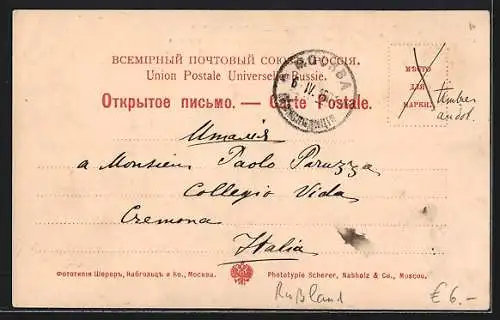 ВСЕМІРНЫЙ ПОЧТОВЫЙ СОЮЗЪ. РОССІЯ.
Union Postale Universelle. Russie.
МОСКВА
6 IV
Открытое письмо. — Carte Postale.
МѢСТО
ДЛЯ
МАРКИ.
timbre
Италія
a Monsieur Paolo Peruzza
Collegio Vida
Cremona
Italia
Фототипія Шереръ, Набгольцъ и Ко., Москва.
Phototypie Scherer, Nabholz & Co., Moscou.
Rußland
€ 6.-